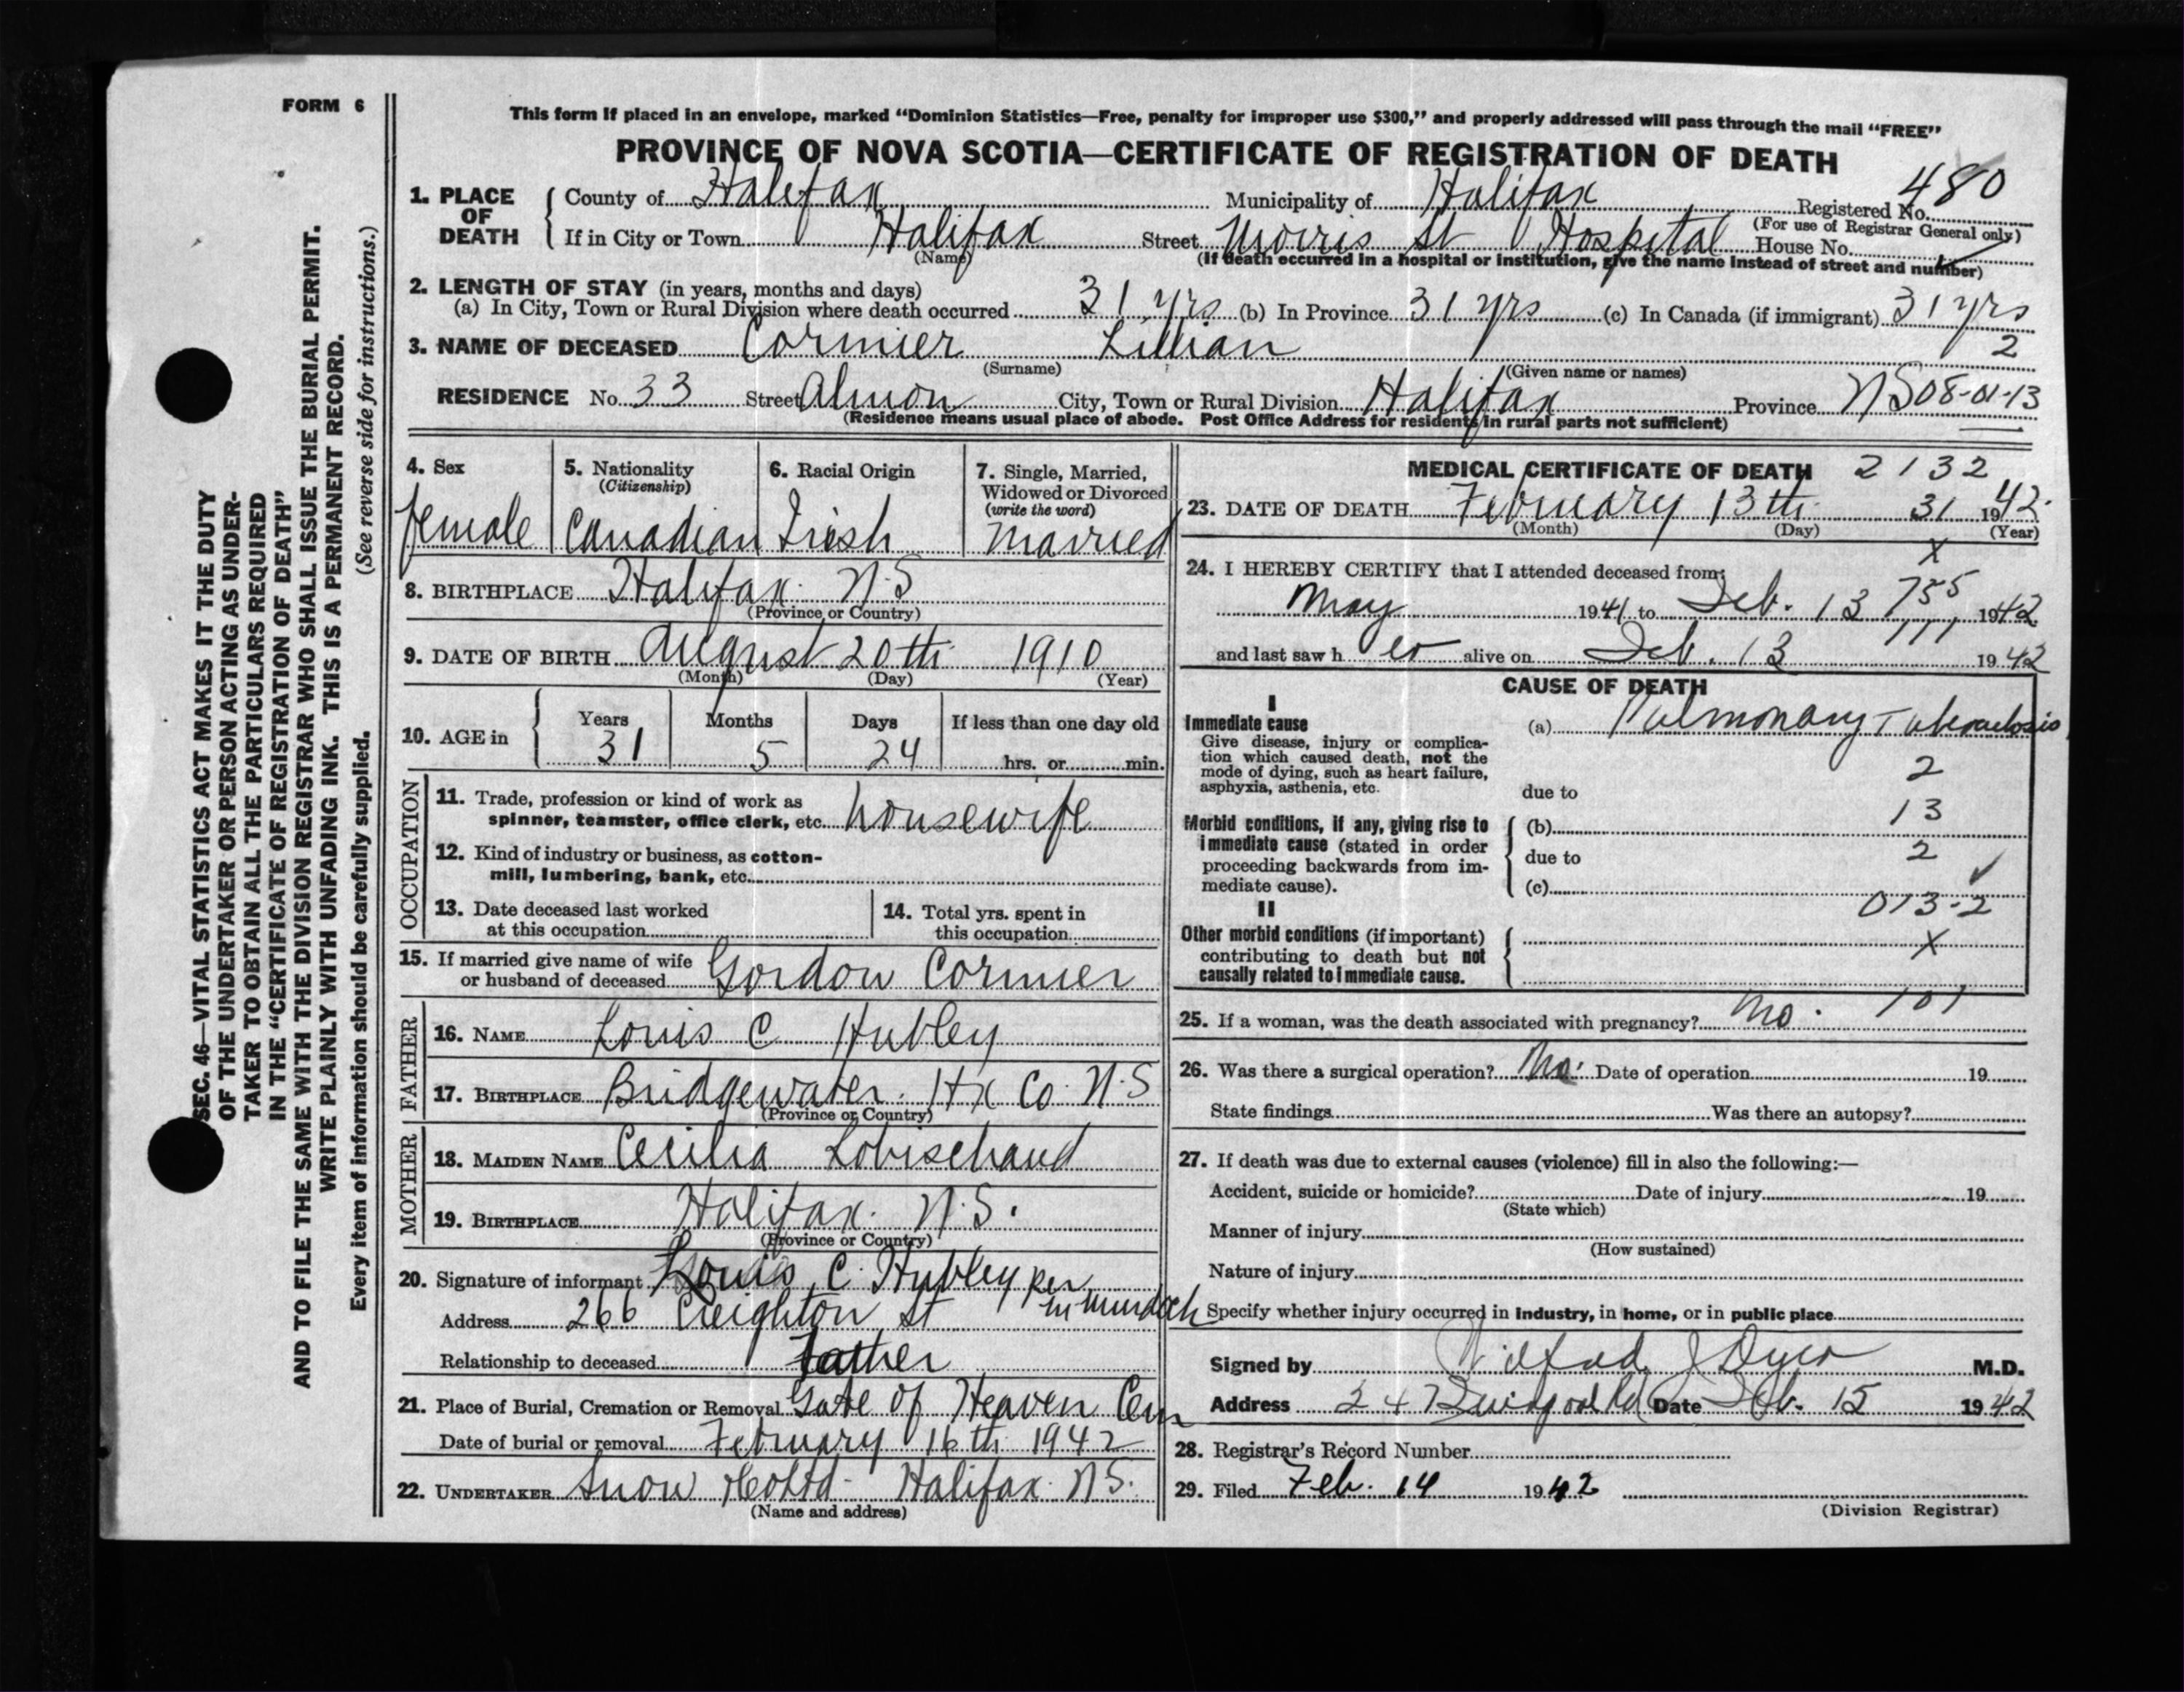 FORM 6
This form if placed in an envelope, marked “Dominion Statistics—Free, penalty for improper use $300,” and properly addressed will pass through the mail “FREE”
PROVINCE OF NOVA SCOTIA—CERTIFICATE OF REGISTRATION OF DEATH
480
1. PLACE OF DEATH
County of Halifax Municipality of Halifax Registered No.
(For use of Registrar General only)
If in City or Town Halifax Street Morris St Hospital House No.
(Name) (If death occurred in a hospital or institution, give the name instead of street and number)
2. LENGTH OF STAY (in years, months and days)
(a) In City, Town or Rural Division where death occurred 31 yrs (b) In Province 31 yrs (c) In Canada (if immigrant) 31 yrs
3. NAME OF DECEASED Cormier Lillian 2
(Surname) (Given name or names)
RESIDENCE No. 33 Street Almon City, Town or Rural Division Halifax Province NS 08-01-13
(Residence means usual place of abode. Post Office Address for residents in rural parts not sufficient)
4. Sex
female
5. Nationality
(Citizenship)
Canadian
6. Racial Origin
Irish
7. Single, Married,
Widowed or Divorced
(write the word)
Married
8. BIRTHPLACE Halifax. N.S
(Province or Country)
9. DATE OF BIRTH August 20th 1910
(Month) (Day) (Year)
10. AGE in
Years Months Days If less than one day old
31 5 24 hrs. or min.
OCCUPATION
11. Trade, profession or kind of work as
spinner, teamster, office clerk, etc. housewife
12. Kind of industry or business, as cotton-
mill, lumbering, bank, etc.
13. Date deceased last worked
at this occupation
14. Total yrs. spent in
this occupation
15. If married give name of wife
or husband of deceased Gordon Cormier
FATHER
16. NAME Louis C Hubley
17. BIRTHPLACE Bridgewater. Hx Co. N.S
(Province or Country)
MOTHER
18. MAIDEN NAME Cecilia
19. BIRTHPLACE Halifax. N.S.
(Province or Country)
20. Signature of informant Louis C. Hubley per
m murdoch
Address 266 Creighton St
Relationship to deceased Father
21. Place of Burial, Cremation or Removal Gate of Heaven Cem
Date of burial or removal February 16th 1942
22. UNDERTAKER Snow Halifax. N.S.
(Name and address)
MEDICAL CERTIFICATE OF DEATH 2132
23. DATE OF DEATH February 13th 31 1942.
(Month) (Day) (Year)
X
24. I HEREBY CERTIFY that I attended deceased from:
May 1941 to Feb. 13 755 1942
111
and last saw h er alive on Feb. 13 1942
CAUSE OF DEATH
I
Immediate cause
Give disease, injury or complica-
tion which caused death, not the
mode of dying, such as heart failure,
asphyxia, asthenia, etc.
(a) Pulmonary Tuberculosis
2
due to
13
Morbid conditions, if any, giving rise to
immediate cause (stated in order
proceeding backwards from im-
mediate cause).
(b)
due to 2
(c)
013-2
II
Other morbid conditions (if important)
contributing to death but not
causally related to immediate cause.
X
25. If a woman, was the death associated with pregnancy? no. 101
26. Was there a surgical operation? No. Date of operation 19
State findings Was there an autopsy?
27. If death was due to external causes (violence) fill in also the following:—
Accident, suicide or homicide? Date of injury 19
(State which)
Manner of injury
(How sustained)
Nature of injury
Specify whether injury occurred in industry, in home, or in public place
Signed by J Dyer M.D.
Address Date Feb. 15 1942
28. Registrar's Record Number
29. Filed Feb. 14 1942
(Division Registrar)
SEC. 46—VITAL STATISTICS ACT MAKES IT THE DUTY
OF THE UNDERTAKER OR PERSON ACTING AS UNDER-
TAKER TO OBTAIN ALL THE PARTICULARS REQUIRED
IN THE “CERTIFICATE OF REGISTRATION OF DEATH”
AND TO FILE THE SAME WITH THE DIVISION REGISTRAR WHO SHALL ISSUE THE BURIAL PERMIT.
WRITE PLAINLY WITH UNFADING INK. THIS IS A PERMANENT RECORD.
Every item of information should be carefully supplied. (See reverse side for instructions.)